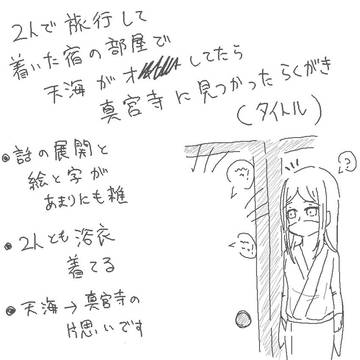 2人で旅行して
着いた宿の部屋で
天海がオ してたら
真宮寺に見つかったらくがき
(タイトル)
●話の展開と
絵と字が
あまりにも雑
●2人とも浴衣
着てる
●天海→真宮寺の
片思いです